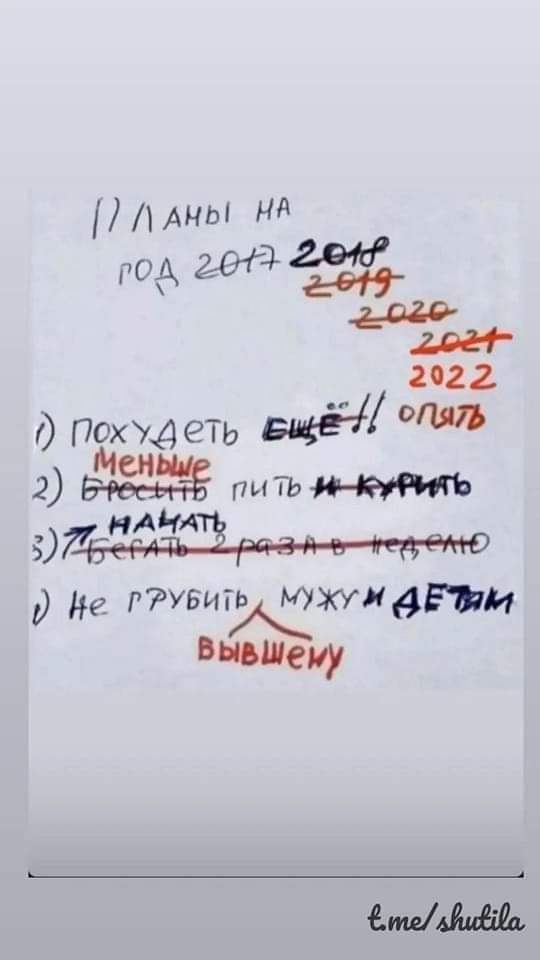 ПЛАНЫ НА
ГОД 2017 2018
2019
2020
2021
2022
1) ПОХУДЕТЬ ЕЩЁ!! ОПЯТЬ
МЕНЬШЕ
2) БРОСИТЬ ПИТЬ И КУРИТЬ
НАЧАТЬ
3) БЕГАТЬ 2 РАЗА В НЕДЕЛЮ
) НЕ ГРУБИТЬ МУЖУ И ДЕТЯМ
БЫВШЕМУ
t.me/shutila